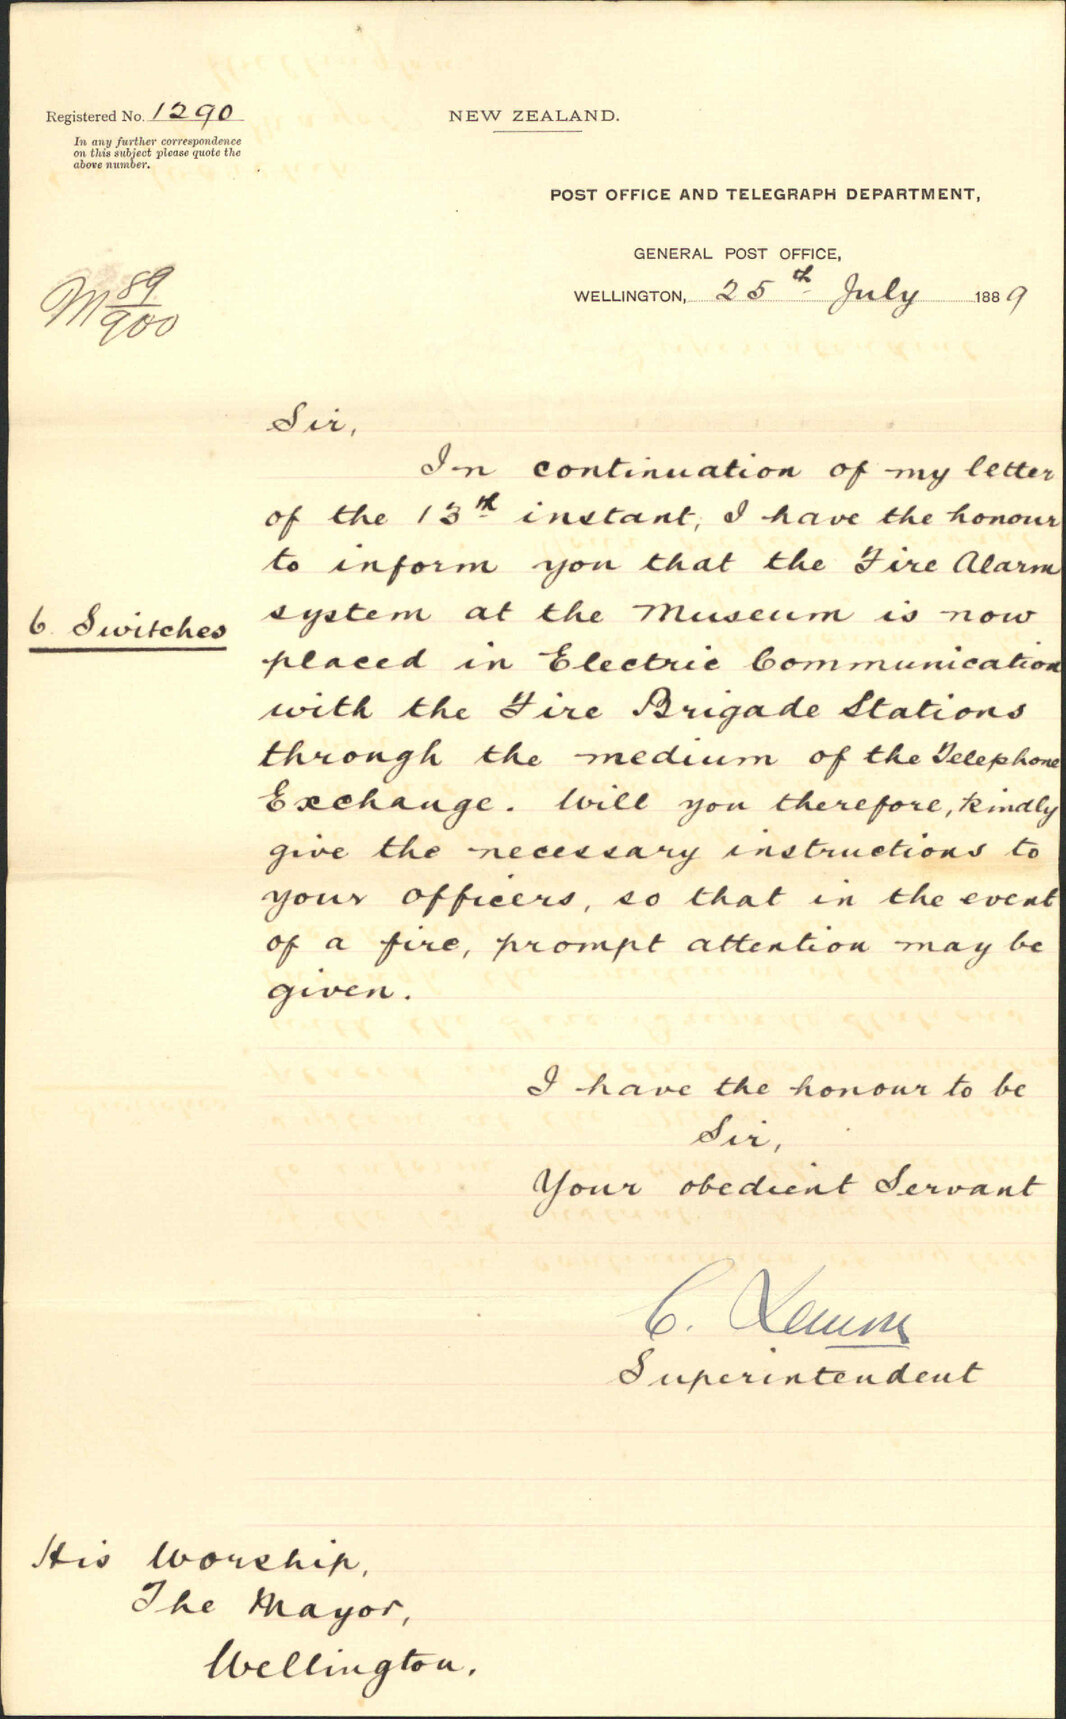 Registered No. 1290
In any further correspondence
on this subject please quote the
above number.
NEW ZEALAND.
POST OFFICE AND TELEGRAPH DEPARTMENT,
GENERAL POST OFFICE,
WELLINGTON, 25th July 1889
M 89/900
Sir,
In continuation of my letter
of the 13th instant, I have the honour
to inform you that the Fire Alarm
6 Switches
system at the Museum is now
placed in Electric Communication
with the Fire Brigade Stations
through the medium of the Telephone
Exchange. Will you therefore, kindly
give the necessary instructions to
your officers, so that in the event
of a fire, prompt attention may be
given.
I have the honour to be
Sir,
Your obedient Servant
C. Lemon
Superintendent
His Worship,
The Mayor,
Wellington.